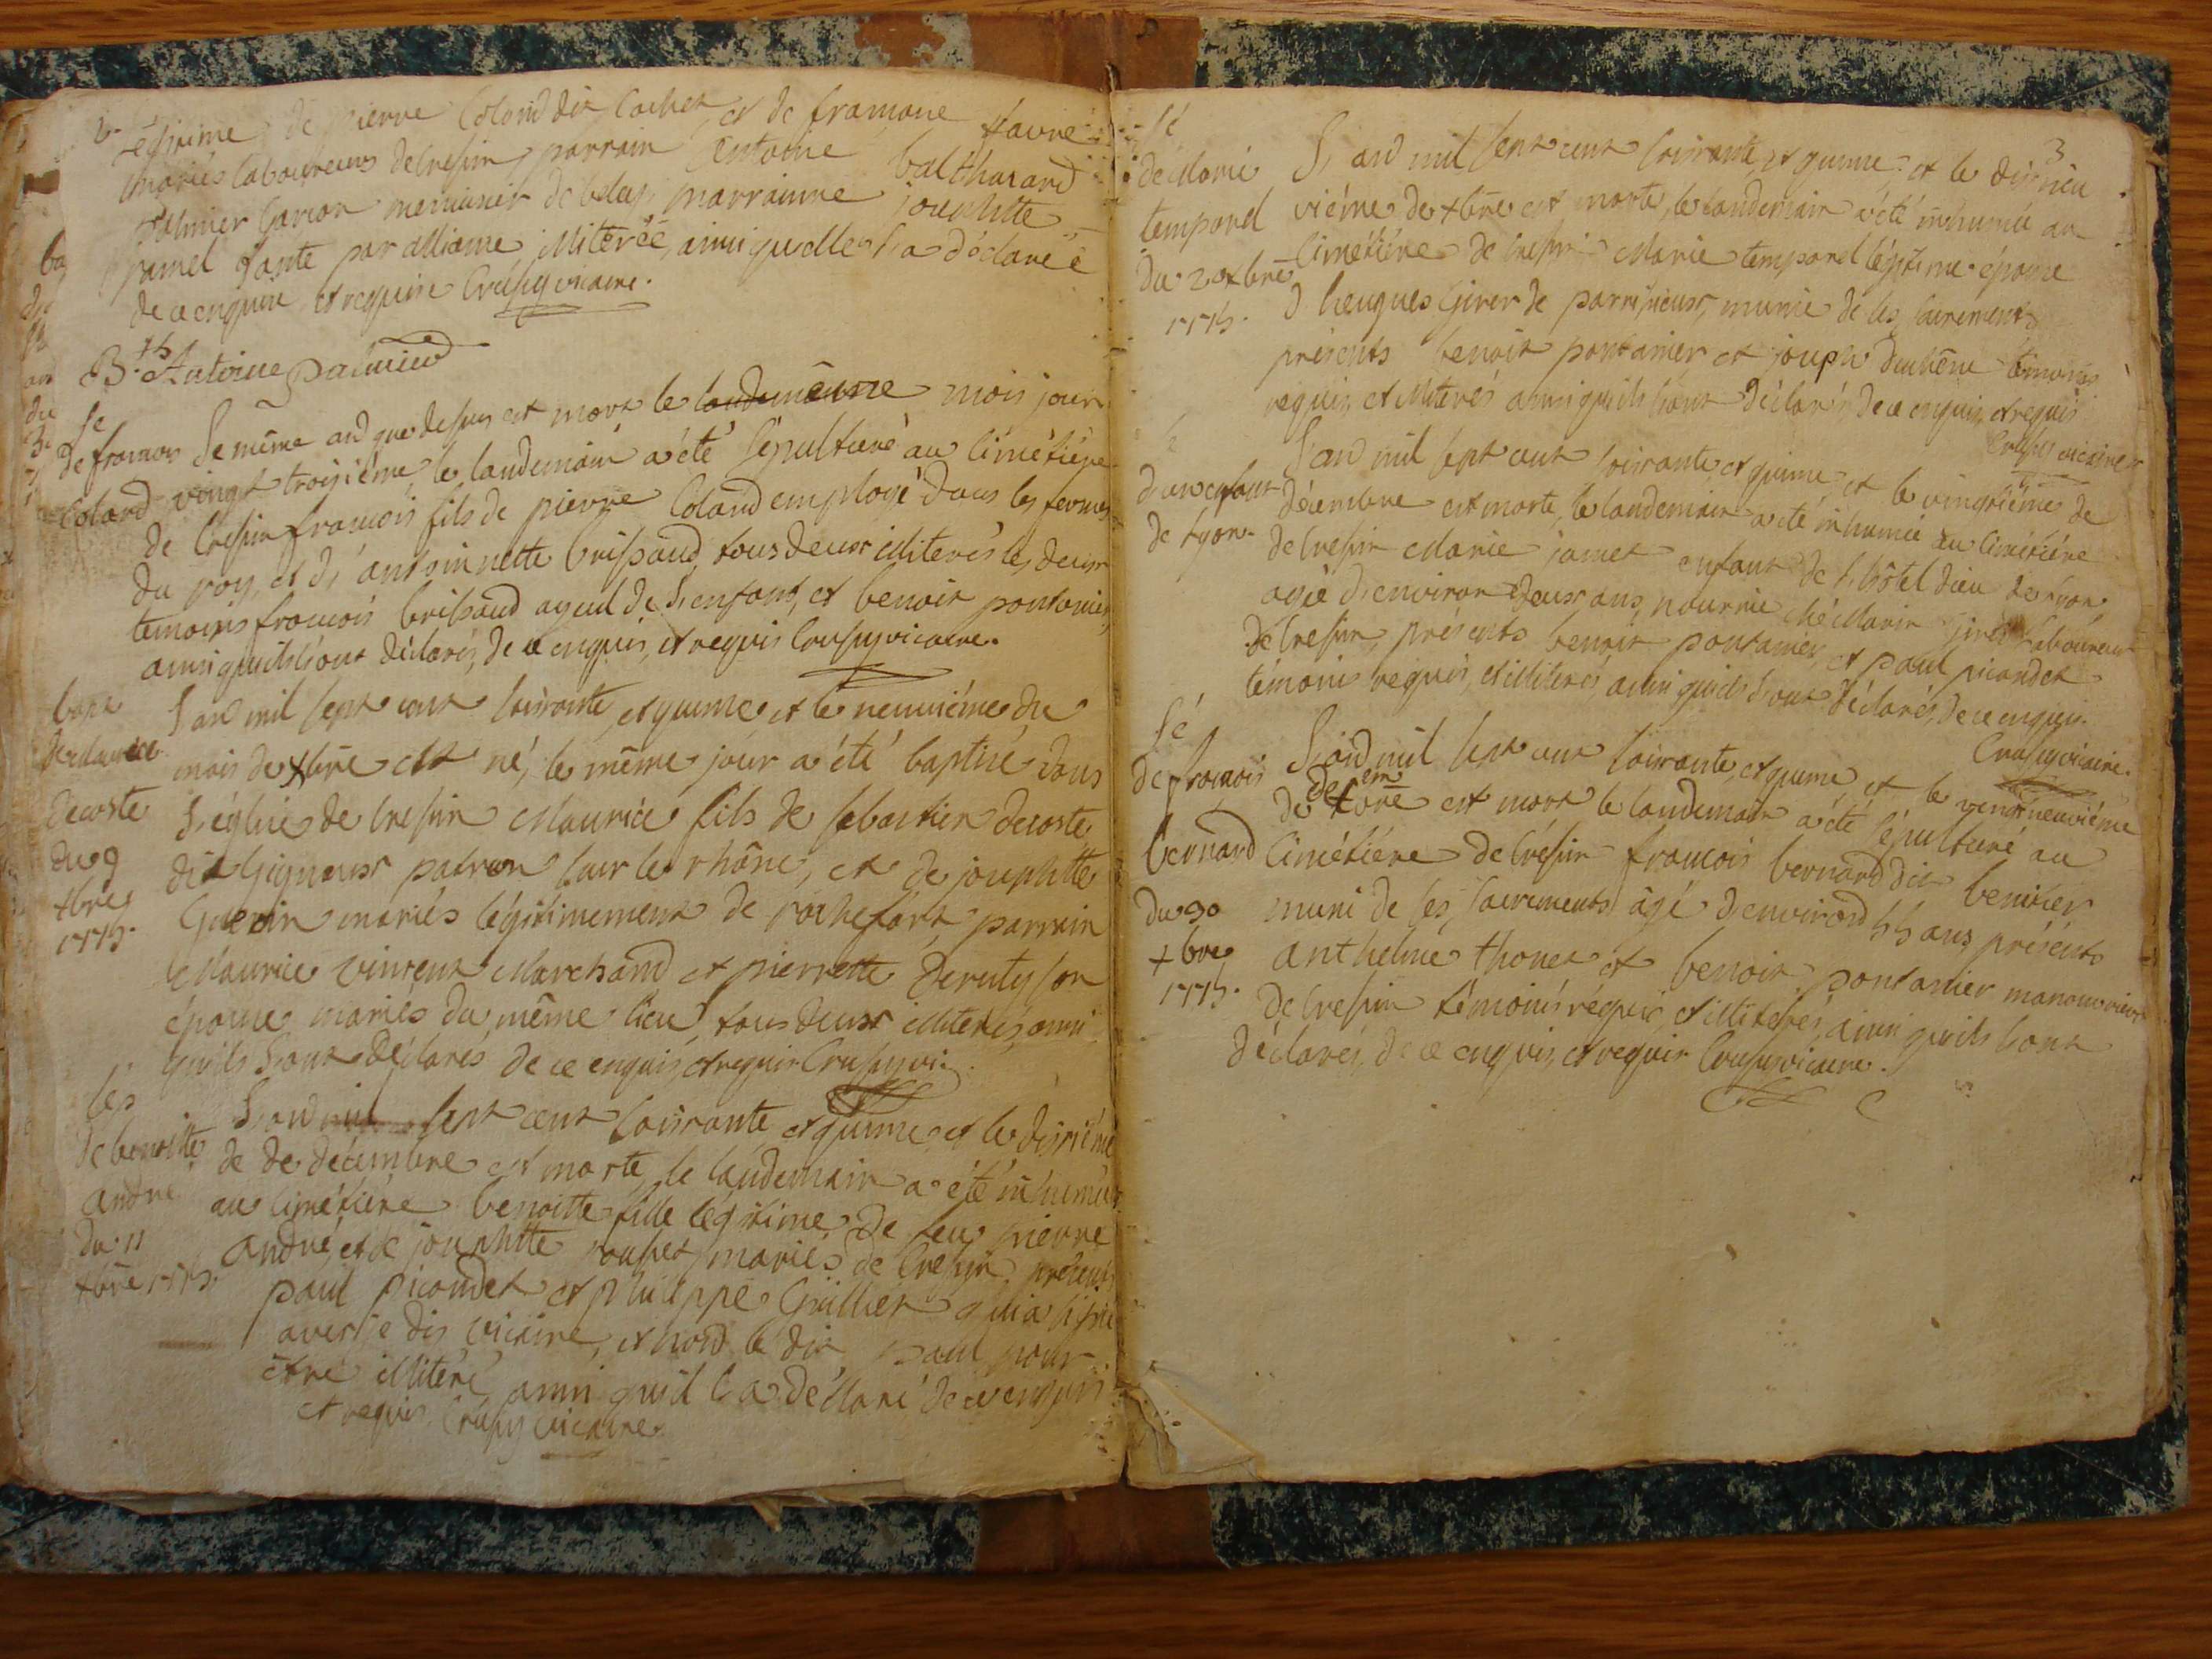 2
légitime de pierre Coland dit Cachet, et de framoise favre
mariés laboureurs de Cresin, parrain Entoine balthazard
palmier Garçon menuisier de belley, marrainne jousphtte
pamel tante par alliame, illiterée, ainsi quelle l'a déclaréé
de ce enquise et requise Crussy vicaire.
B.th Antoine palmier
Sé
de framois
Coland
Le même and que dessus est mort le mois jour
vingt troisiéme, le landemain a été sépulturé au Cimétiére
de Cresin framois fils de pierre Coland employé dans les fermes
du roy, et d'antoinnette brissaud, tous deux illiterés les deux
temoins framois brissaud ayeul de l'enfant, et benoit pontanier,
ainsi quils l'ont déclarés, de ce enquis, et requis Crussy vicaire.
bapt
de Maurice
decoste
du 9
xbre
1775.
L'and mil sept cent soixante et quinze et le neuviéme du
mois de xbre est né, le même jour a été baptisé dans
L'églisé de Cresin Maurice fils de sebastien decoste
dit Gigneux patron sur le rhône, et de jousphtte
Guerin mariés légitimement de rochefort parrain
Maurice vincent Marchand et pierrette deruty son
épouse mariés du même lieu tous deux illiterés, ainsi
quils l'ont déclarés de ce enquis, et requis Crussy vic.
Sép
de benoitte
andré
du 11
xbre 1775.
L'and mil sept cent soixante et quinze et le dixiéme
de de décembre est morte, le landemain a été inhumée
au Cimétiére benoitte fille légitime de feu pierre
andré, et de jousphtte mariés de Cresin, présents
paul picondet et philippe Guillier qui a signé
avec je dis vicaire, et nond le dit paul pour
être illiteré, ainsi quil l'a déclaré de ce enquis
et requis Crussy vicaire.
3
Sé
de Marie
tempord
du 20 xbre
1775.
L'and mil sept cent soixante et quinze et le dixneu
viéme de xbre est morte, le landemain a été inhumée au
Cimétiére de Cresin Marie tempord légitime épouse
d'heugues Girer de parrisieux, munie de ses sacrements
présents benoit pontanier, et jouph duchêne témoins
requis, et illiterés ainsi quils l'ont déclarés, de ce enquis, et requis
Crussy vicaire
Sé
d'un enfant
de Lyon.
L'and mil sept cent soixante et quinze, et le vingtiéme de
décembre est morte, le landemain a été inhumée au Cimétiére
de Cresin Marie jamet enfant de L'hôtel dieu de Lyon,
agée d'environ deux ans, nourrie ché Marin laboureur
de Cresin, présents benoit pontanier, et paul picondet
témoins requis, et illiterés, ainsi quils l'ont déclarés, de ce enquis.
Crussy vicaire.
Sé
de framois
bernard
du 30
xbre
1775.
L'and mil sept cent soixante, et quinze et le vingt neuviéme
de décembre est mort le landemain a été sépulturé au
Cimétiére de Crésin framois bernard dit benitier
muni de ses sacrements âgé d'environd 55 ans, présents
anthelme thonet et benoit pontanier manouvriers
de Cresin témoins réquis, et illiterés, ainsi quils l'ont
déclarés, de ce enquis, et requis Crussy vicaire.